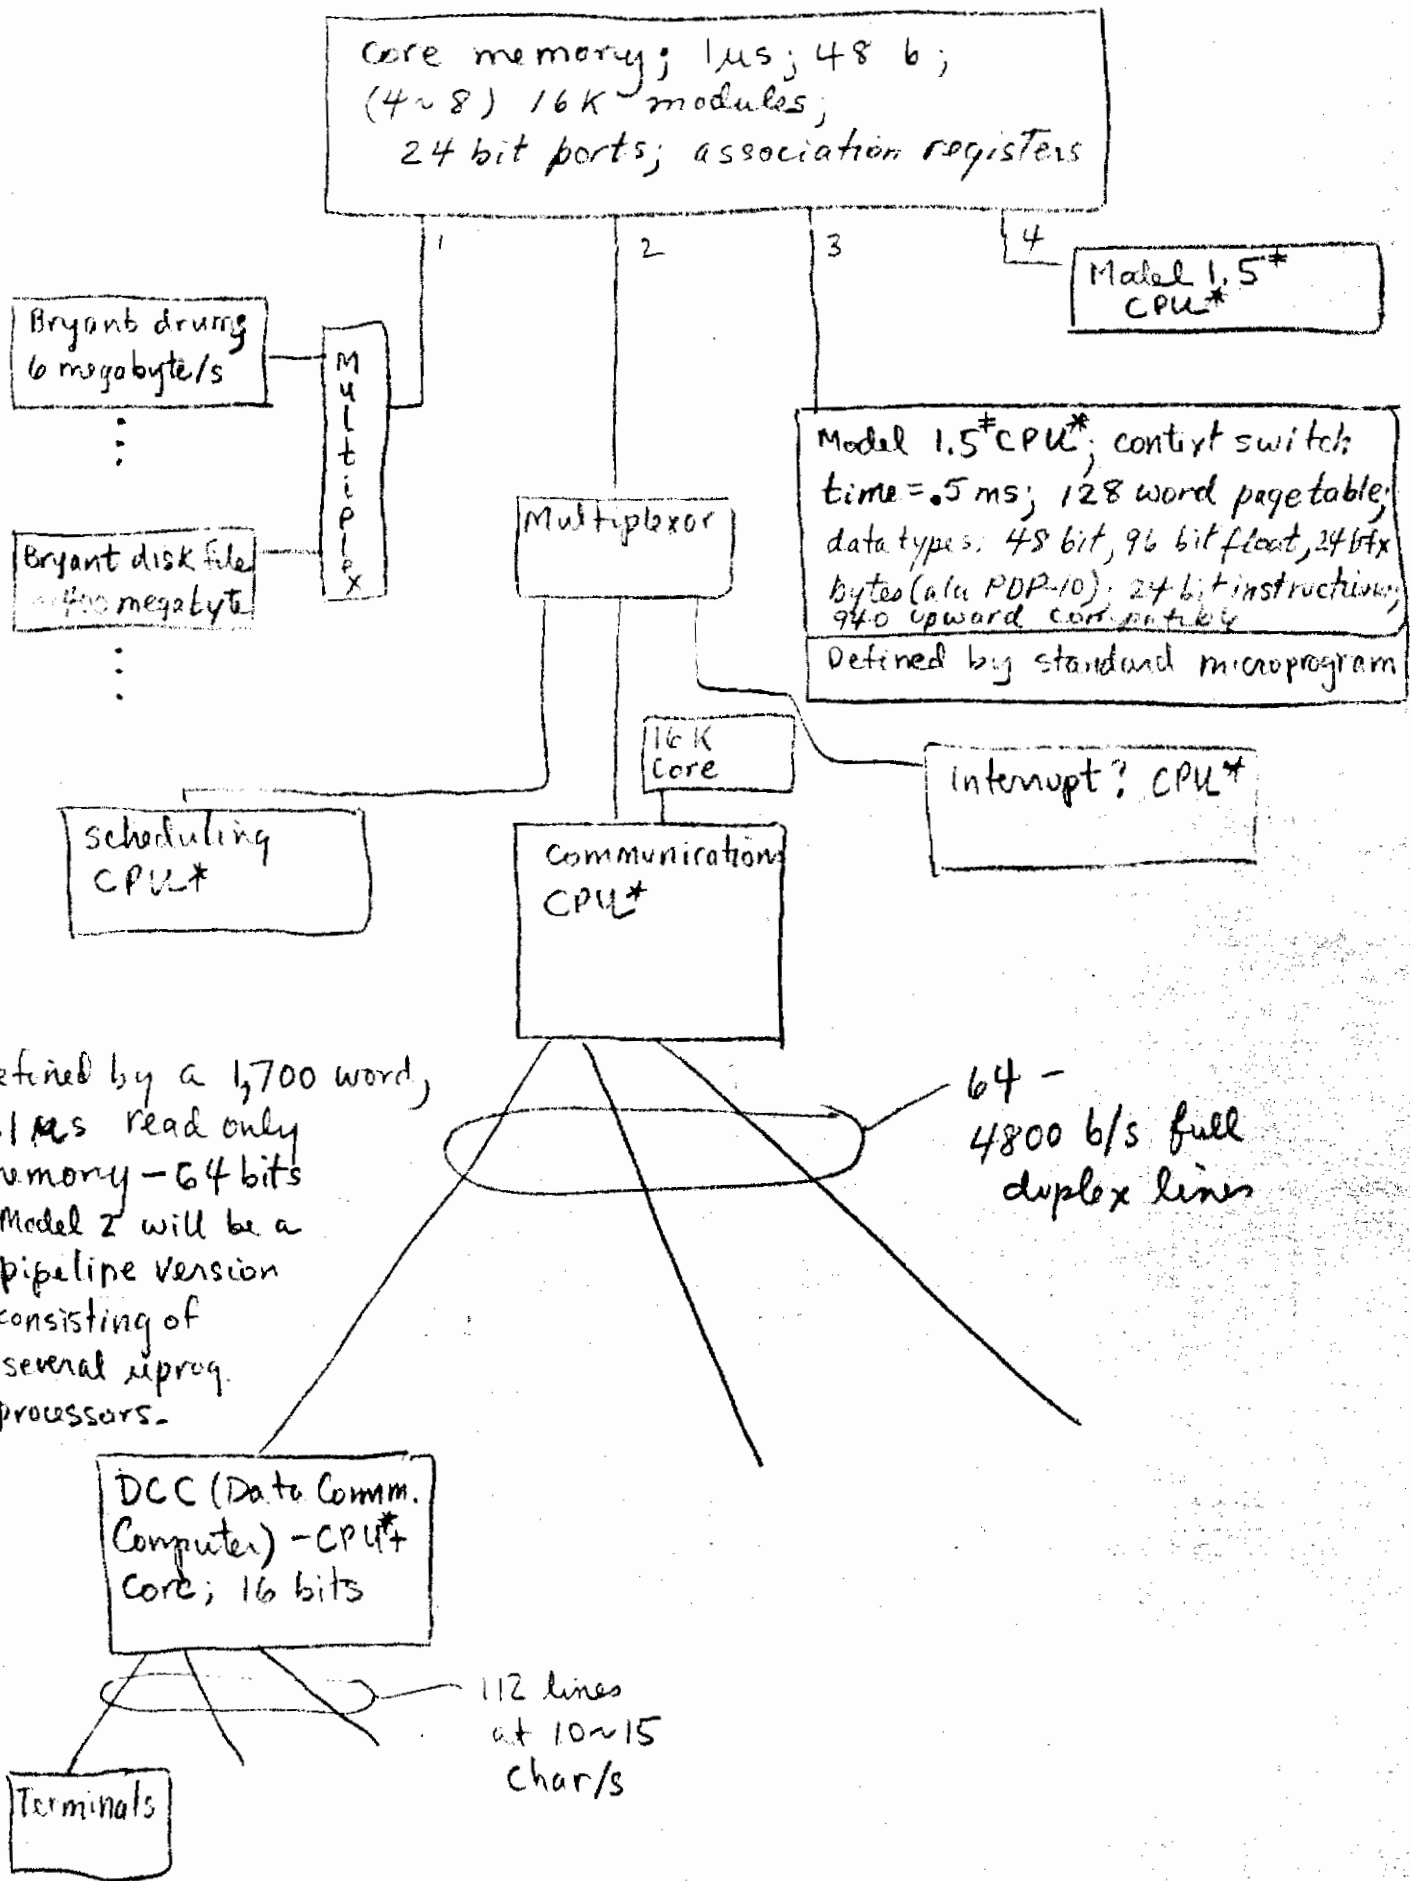 core memory; 1μs; 48 b;
(4~8) 16K modules;
24 bit ports; association registers
1
2
3
4
Model 1.5‡
CPU*
Bryant drums
6 megabyte/s
Multiplex
Bryant disk file
400 megabyte
Multiplexor
Model 1.5‡ CPU*; context switch
time=.5 ms; 128 word page table;
data types: 48 bit, 96 bit float, 24 b fx
bytes (ala PDP-10); 24 bit instructions;
940 upward compatible
Defined by standard microprogram
16K
Core
Interrupt? CPU*
scheduling
CPU*
Communications
CPU*
efined by a 1,700 word,
.1 μs read only
memory - 64 bits
Model 2 will be a
pipeline version
consisting of
several μprog.
processors.
64 -
4800 b/s full
duplex lines
DCC (Data Comm.
Computer) - CPU*+
Core; 16 bits
112 lines
at 10~15
char/s
Terminals